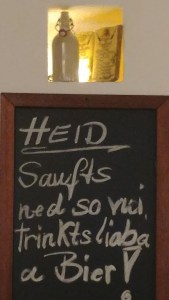 HEID
Saufts
ned so vui,
trinkts liaba
a Bier!